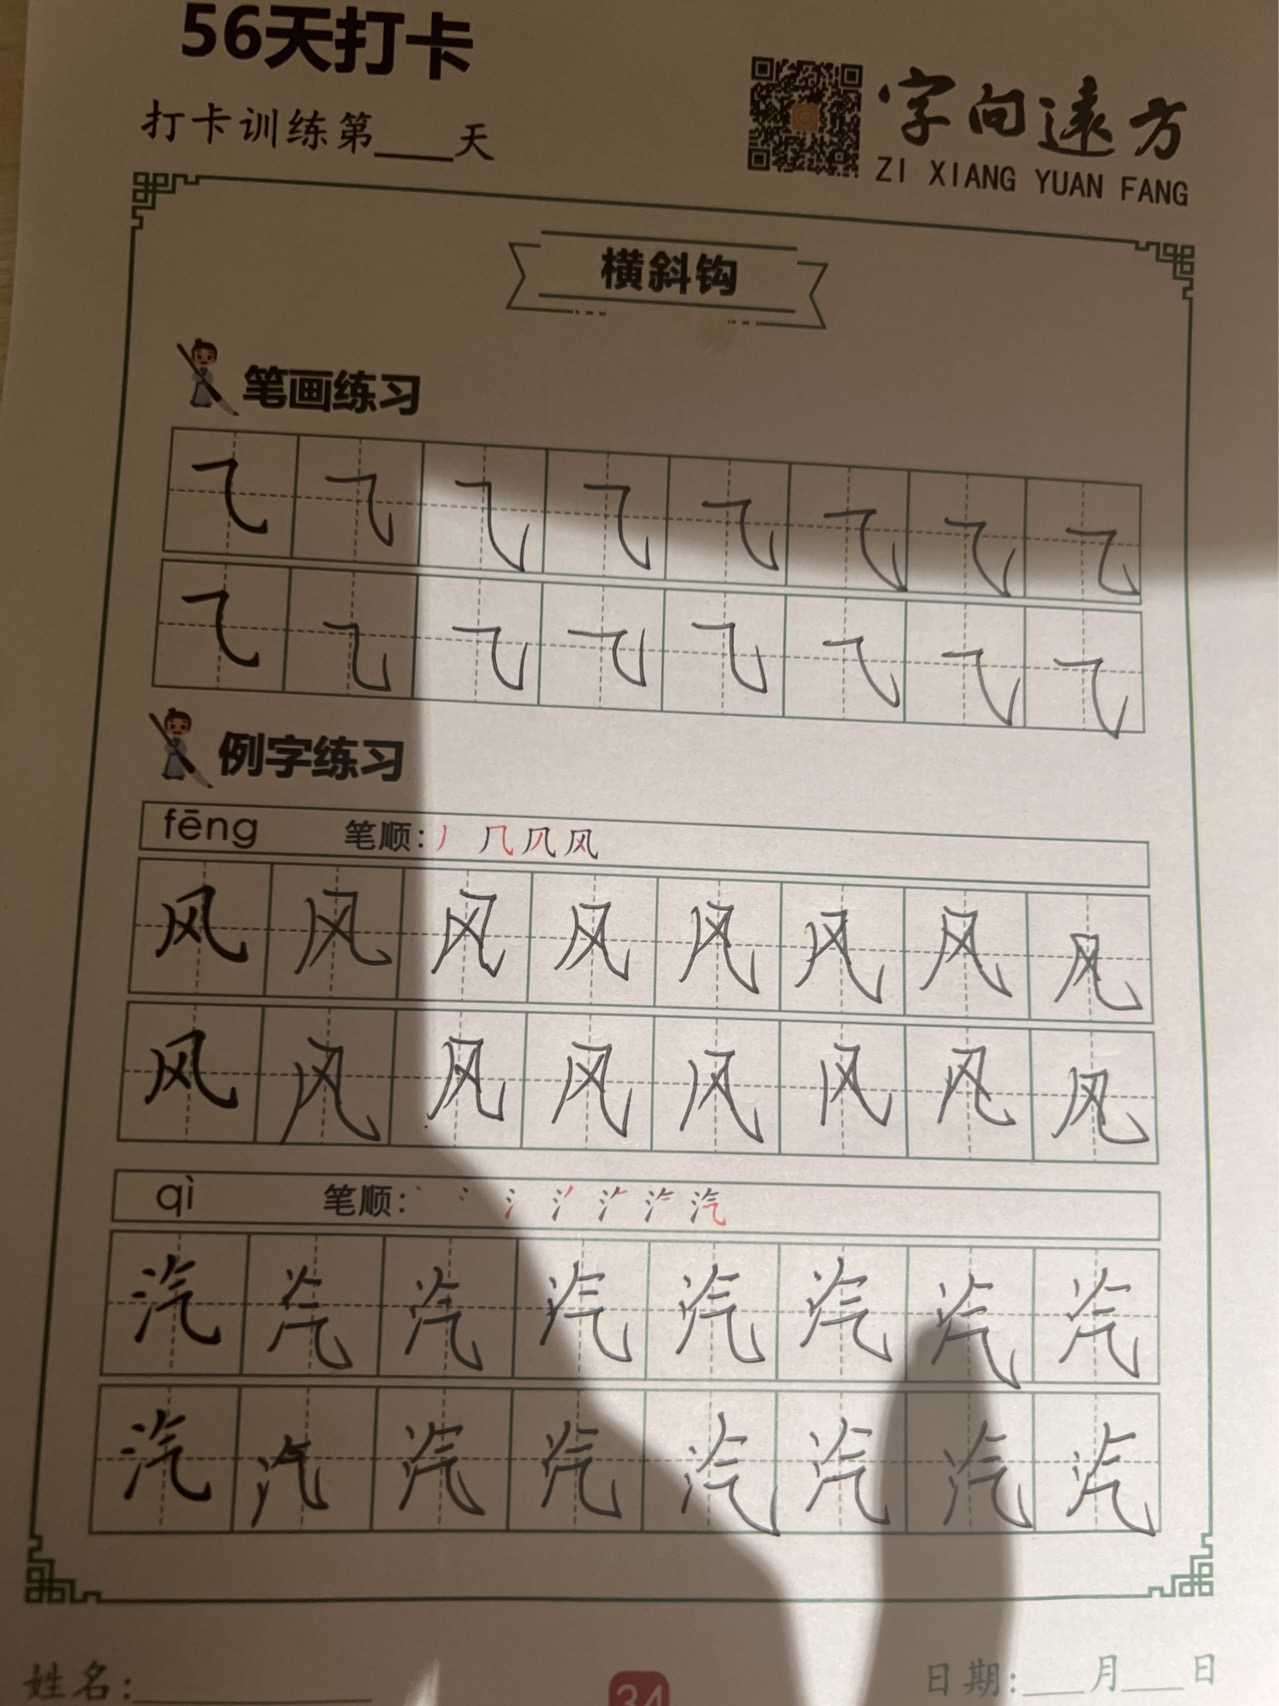 56天打卡
打卡训练第____天
字向遠方
ZI XIANG YUAN FANG
横斜钩
笔画练习
⺄ ⺄ ⺄ ⺄ ⺄ ⺄ ⺄ ⺄
⺄ ⺄ ⺄ ⺄ ⺄ ⺄ ⺄ ⺄
例字练习
fēng 笔顺: 丿 ⺇ 风
风 风 风 风 风 风 风 风
风 风 风 风 风 风 风 风
qì 笔顺: 丶 冫 氵 汽
汽 汽 汽 汽 汽 汽 汽 汽
汽 汽 汽 汽 汽 汽 汽 汽
姓名:________ 34 日期:___月___日